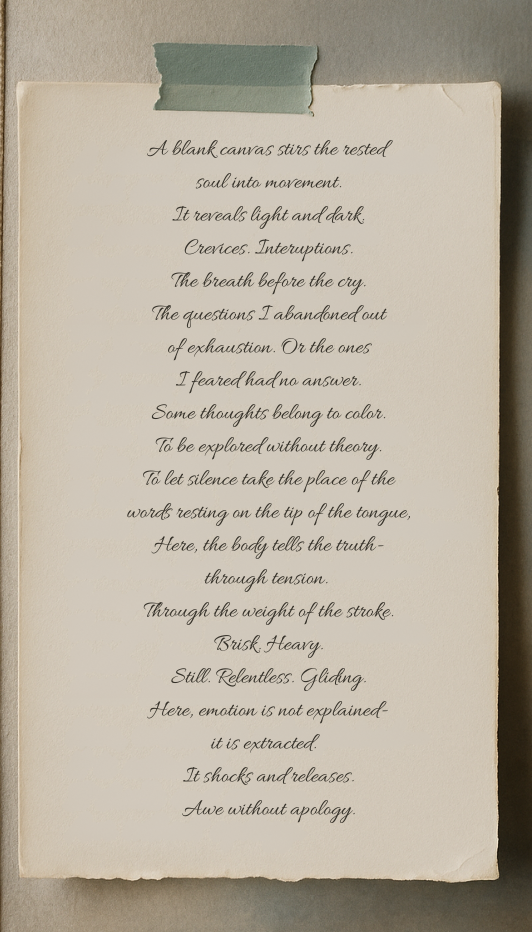 A blank canvas stirs the rested
soul into movement.
It reveals light and dark.
Crevices. Interuptions.
The breath before the cry.
The questions I abandoned out
of exhaustion. Or the ones
I feared had no answer.
Some thoughts belong to color.
To be explored without theory.
To let silence take the place of the
words resting on the tip of the tongue,
Here, the body tells the truth-
through tension.
Through the weight of the stroke.
Brisk. Heavy.
Still. Relentless. Gliding.
Here, emotion is not explained-
it is extracted.
It shocks and releases.
Awe without apology.